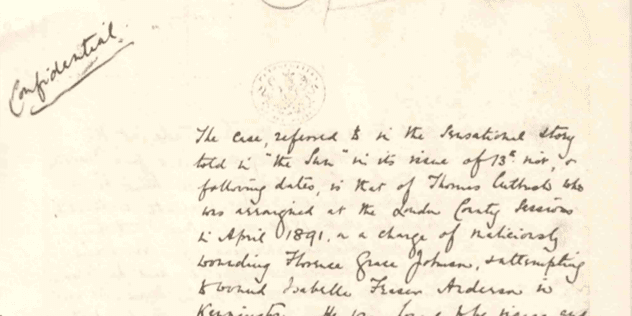 Confidential.
The case, referred to in the sensational story
told in "the Sun" in its issue of 13th inst, &
following dates, is that of Thomas Cutbush who
was arraigned at the London County Sessions
in April 1891, on a charge of maliciously
wounding Florence Grace Johnson, & attempting
to wound Isabelle Fraser Anderson in
Kennington. He was found to be insane and